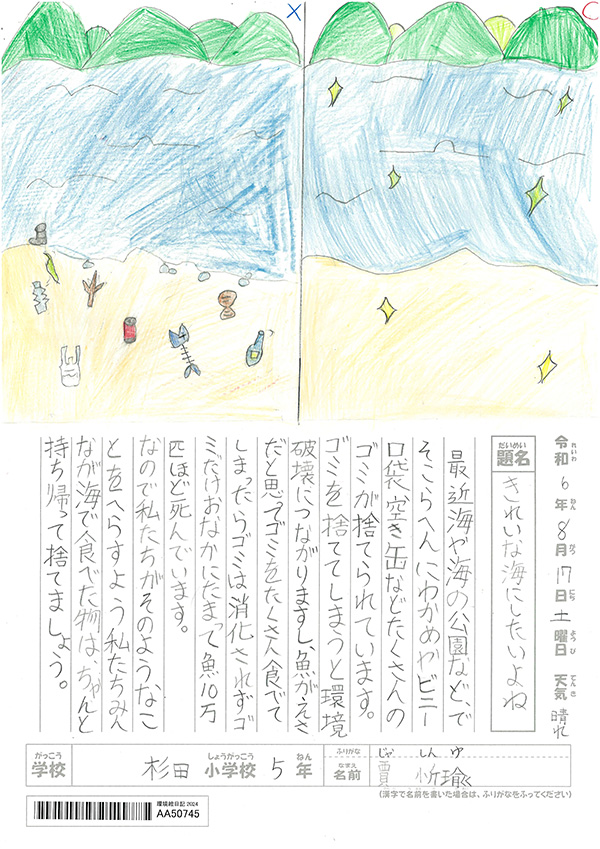 X
令和6年8月17日土曜日 天気 晴れ
れいわ ねん がつ にち ようび てんき
だいめい
題名
きれいな海にしたいよね
最近海や海の公園など、で
そこらへんにわかめやビニー
口袋、空き缶などたくさんの
ゴミが捨てられています。
ゴミを捨ててしまうと環境
破壊につながりますし、魚がえさ
だと思ってゴミをたくさん食べて
しまったらゴミは消化されずゴ
ミだけおなかにたまって魚10万
匹ほど死んでいます。
なので私たちがそのようなこ
とをへらすよう私たちみん
なが海で食べた物は、ちゃんと
持ち帰って捨てましょう。
がっこう しょうがっこう ねん
学校 杉田 小学校 5年
ふりがな じゃ しん ゆ
なまえ
名前 賈 忻瑜
(漢字で名前を書いた場合は、ふりがなをふってください)
環境絵日記2024
AA50745